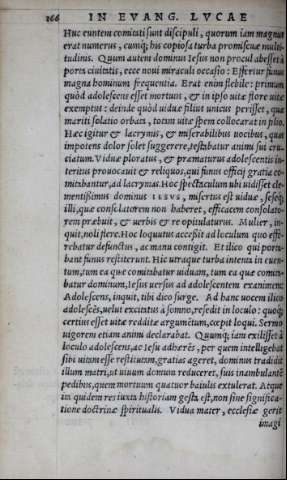 266 IN EVANG. LVCAE
Huc euntem comitati sunt discipuli, quorum iam magnus
erat numerus, cumq́; his copiosa turba promiscuæ multi-
tudinis. Quum autem dominus Iesus non procul abesset à
portis ciuitatis, ecce noui miraculi occasio: Effertur funus
magna hominum frequentia. Erat enim flebile: primum
quòd adolescens esset mortuus, & in ipso uitæ flore uitæ
exemptus: deinde quòd uiduæ filius unicus perisset, quæ
mariti solatio orbata, totam uitæ spem collocarat in filio.
Hæc igitur & lacrymis, & miserabilibus uocibus, quas
impotens dolor solet suggerere, testabatur animi sui cru-
ciatum. Viduæ ploratus, & præmaturus adolescentis in-
teritus prouocauit & reliquos, qui funus officij gratia co-
mitabantur, ad lacrymas. Hoc spectaculum ubi uidisset cle-
mentissimus dominus IESVS, misertus est uiduæ, seseq́;
illi, quæ consolatorem non haberet, efficacem consolato-
rem præbuit, & uerbis & re opitulatus. Mulier, in-
quit, noli flere. Hoc loquutus accessit ad loculum quo effe-
rebatur defunctus, ac manu contigit. Et ilico qui porta-
bant funus restiterunt. Hic utraque turba intenta in euen-
tum, tam ea quæ comitabatur uiduam, tum ea quæ comita-
batur dominum, Iesus uersus ad adolescentem exanimem:
Adolescens, inquit, tibi dico surge. Ad hanc uocem ilico
adolescẽs, uelut excitatus à somno, resedit in loculo: quoq́;
certius esset uitæ redditæ argumẽtum, cœpit loqui. Sermo
uigorem etiam animi declarabat. Quumq́; iam exilisset à
loculo adolescens, ac Iesu adhærẽs, per quem intelligebat
sibi uitam esse restitutam, gratias ageret, dominus tradidit
illum matri, ut uiuum domum reduceret, suis inambulantẽ
pedibus, quem mortuum quatuor baiulis extulerat. Atque
in quidem res iuxta historiam gesta est, non sine significa-
tione doctrinæ spiritualis. Vidua mater, ecclesiæ gerit
imagi